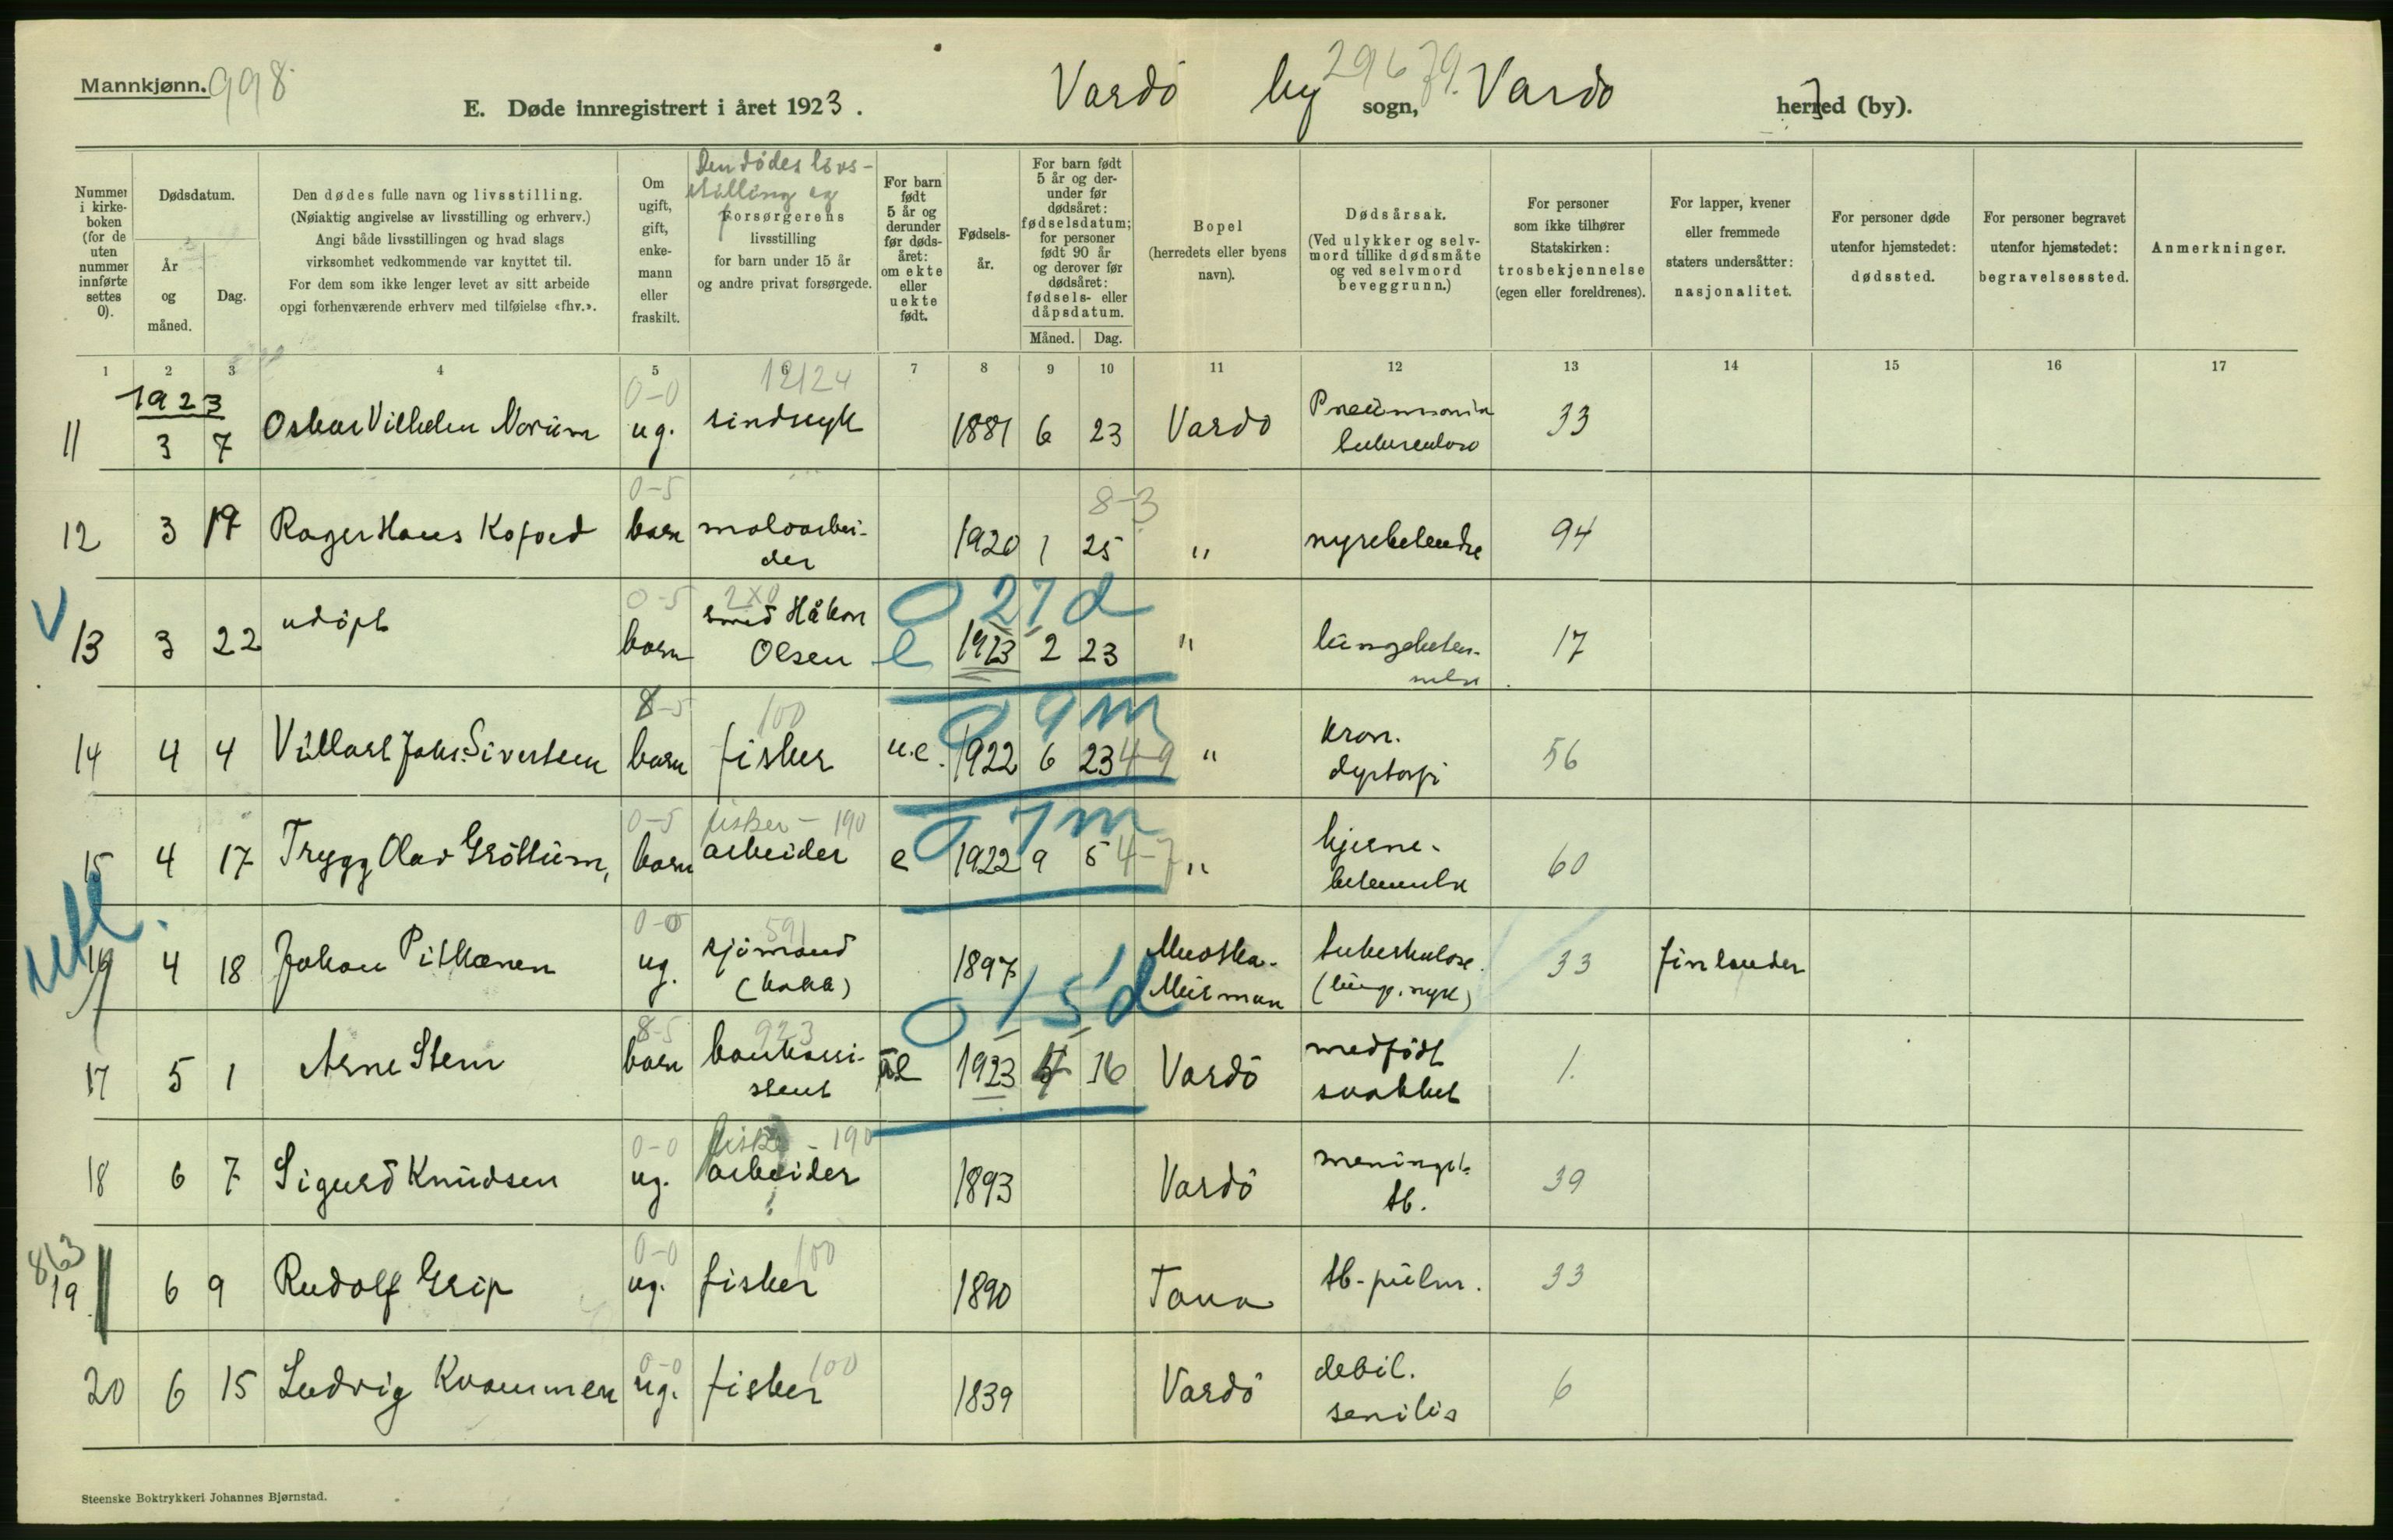 Mannkjønn. 998
E. Døde innregistrert i året 1923. Vardö by sogn, 29679. Vardö herred (by).
Nummer i kirke-boken (for de uten nummer innførte settes 0).
Dødsdatum.
År og måned.
Dag.
Den dødes fulle navn og livsstilling.
(Nøiaktig angivelse av livsstilling og erhverv.)
Angi både livsstillingen og hvad slags
virksomhet vedkommende var knyttet til.
For dem som ikke lenger levet av sitt arbeide
opgi forhenværende erhverv med tilføielse «fhv.».
Om ugift, gift, enke-mann eller fraskilt.
Den dödes livs-
stilling og
Forsørgerens
livsstilling
for barn under 15 år
og andre privat forsørgede.
For barn født 5 år og derunder før døds-året: om ekte eller uekte født.
Fødsels-år.
For barn født 5 år og der-under før dødsåret: fødselsdatum; for personer født 90 år og derover før dødsåret: fødsels- eller dåpsdatum.
Måned. Dag.
Bopel
(herredets eller byens
navn).
Dødsårsak.
(Ved ulykker og selv-
mord tillike dødsmåte
og ved selvmord
beveggrunn.)
For personer
som ikke tilhører
Statskirken:
trosbekjennelse
(egen eller foreldrenes).
For lapper, kvener
eller fremmede
staters undersåtter:
nasjonalitet.
For personer døde
utenfor hjemstedet:
dødssted.
For personer begravet
utenfor hjemstedet:
begravelsessted.
Anmerkninger.
1 2 3 4 5 6 7 8 9 10 11 12 13 14 15 16 17
1923 0-0 12124
11 3 7 Oskar Vilhelm Norum ug. sindsyk 1881 6 23 Vardö Pneumonia tuberculose 33
0-5 8-3
12 3 19 Roger Hans Kofoed barn moloarbei-der 1920 1 25 " nyrebetendse 94
0-5 2X0 0 27 d
V 13 3 22 udöpt barn smed Håkon Olsen e 1923 2 23 " lungebeten-nelse 17
8-5 100 0 9 m
14 4 4 Villart Johs. Sivertsen barn fisker u.e. 1922 6 23 4-9 " kron. dystrofi 56
0-5 fisker - 190 0 7 m
15 4 17 Trygg Olav Gröttum, barn arbeider e 1922 9 5 4-7 " hjerne-betennelse 60
utl. 0-0 591
16 4 18 Johan Pitkänen ug. sjömand (kokk) 1897 Muotka-Murman tuberkulose (lunge.syk) 33 finlender
8-5 923 0 15 d
17 5 1 Arne Stem barn bankassi-stent e 1923 4 16 Vardö medfödt svakhet 1.
0-0 fisker - 190
18 6 7 Sigurd Knudsen ug. arbeider 1893 Vardö meningit. tb. 39
863 0-0 100
19 6 9 Rudolf Grip ug. fisker 1890 Tana tb-pulm. 33
0-0 100
20 6 15 Ludvig Kvammen ug. fisker 1839 Vardö debil. senilis 6
Steenske Boktrykkeri Johannes Bjørnstad.